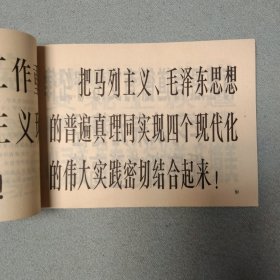 工作重
主义现
!
把马列主义、毛泽东思想
的普遍真理同实现四个现代化
的伟大实践密切结合起来！